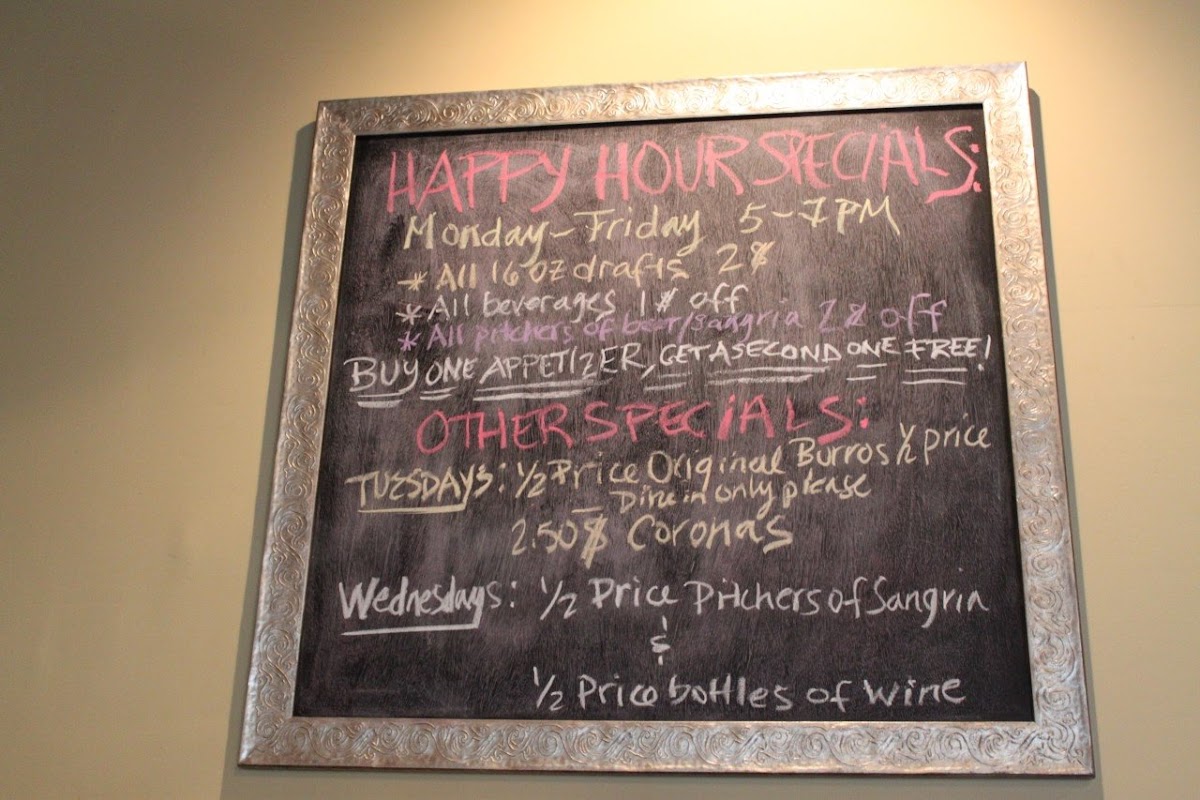 HAPPY HOUR SPECIALS:
Monday-Friday 5-7PM
*All 16oz drafts 2$
*All beverages 1$ off
*All pitchers of beer/sangria 2$ off
BUY ONE APPETIZER, GET A SECOND ONE FREE!
OTHER SPECIALS:
TUESDAYS: 1/2 Price Original Burros 1/2 price
- Dine in only please
2.50$ Coronas
Wednesdays: 1/2 Price Pitchers of Sangria
&
1/2 Price bottles of wine